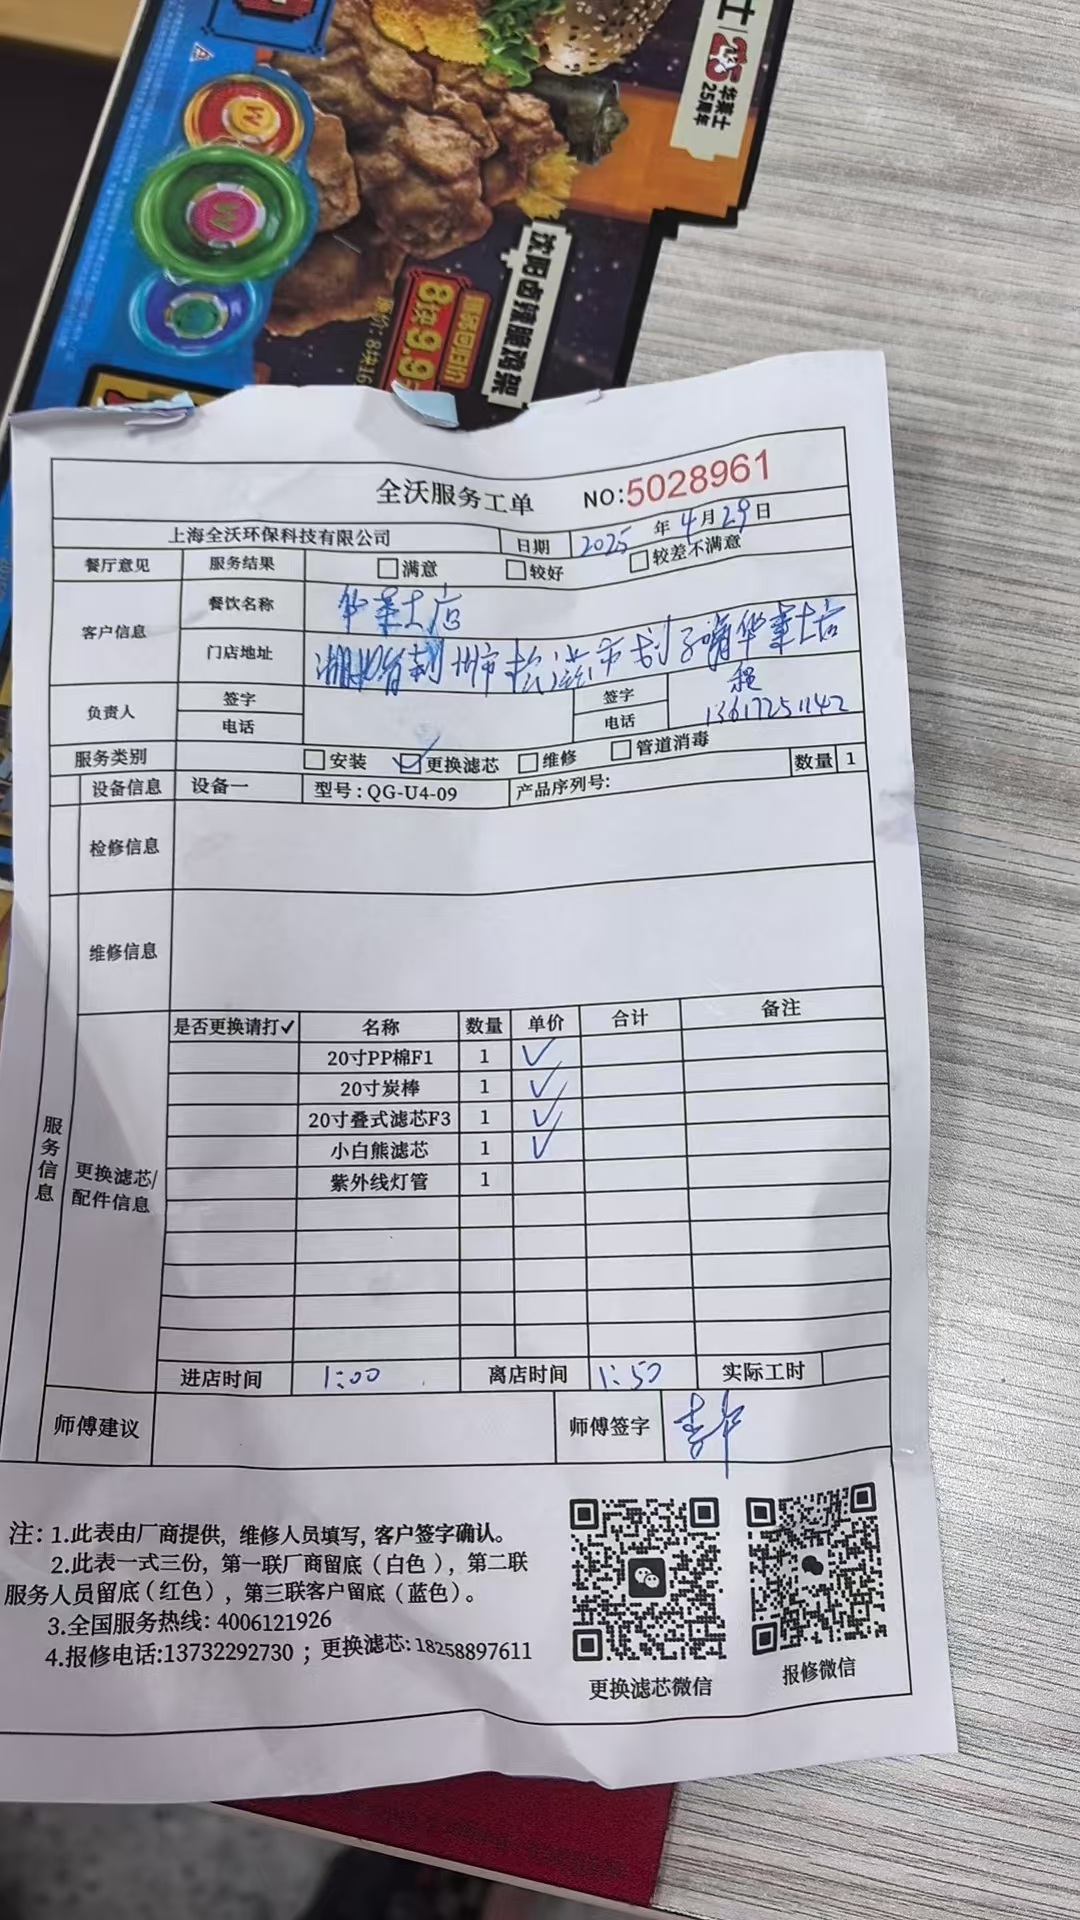 士
华莱士
25周年
沈阳卤辣脆鸡架
8块9.9
全沃服务工单 NO:5028961
上海全沃环保科技有限公司 日期 2025年4月29日
餐厅意见 服务结果 满意 较好 较差不满意
客户信息 餐饮名称 华莱士店
门店地址 湖北省荆州市松滋市刘家场华莱士店
负责人 签字 签字 程
电话 电话 13617251142
服务类别 安装 ✓更换滤芯 维修 管道消毒
设备信息 设备一 型号:QG-U4-09 产品序列号: 数量 1
检修信息
维修信息
服务信息
更换滤芯/配件信息
是否更换请打✓ 名称 数量 单价 合计 备注
20寸PP棉F1 1 ✓
20寸炭棒 1 ✓
20寸叠式滤芯F3 1 ✓
小白熊滤芯 1 ✓
紫外线灯管 1
进店时间 1:00 离店时间 1:50 实际工时
师傅建议 师傅签字
注:1.此表由厂商提供,维修人员填写,客户签字确认。
2.此表一式三份,第一联厂商留底(白色),第二联
服务人员留底(红色),第三联客户留底(蓝色)。
3.全国服务热线:4006121926
4.报修电话:13732292730;更换滤芯:18258897611
更换滤芯微信 报修微信